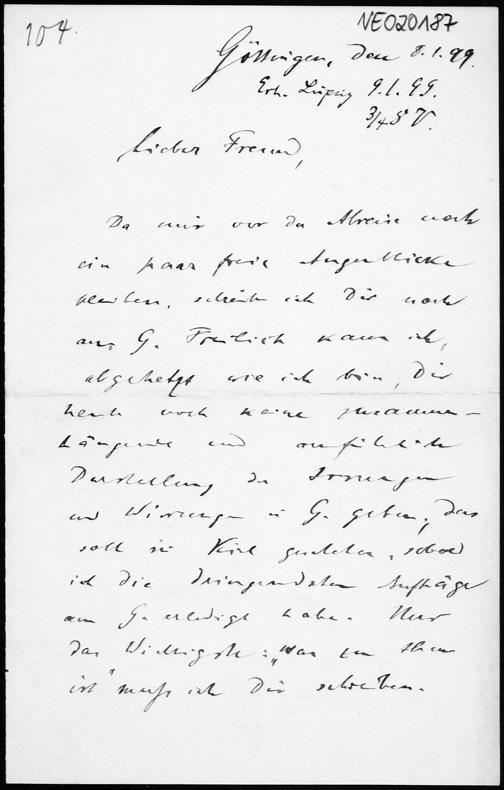 104.
NE020187
Göttingen, den 8.1.99.
Erh. Leipzig 9.1.99.
3/4 8 V.
Lieber Freund,
Da mir vor der Abreise noch
ein paar freie Augenblicke
bleiben, schreib ich Dir noch
aus G. Freilich kann ich,
abgehetzt wie ich bin, Dir
heute noch keine zusammen-
hängende und ausführliche
Darstellung der Irrungen
und Wirrungen in G. geben; das
soll in Kiel geschehen, sobald
ich die dringendsten Aufträge
aus G. erledigt habe. Nur
das Wichtigste: "was zu thun
ist" muß ich Dir schreiben.